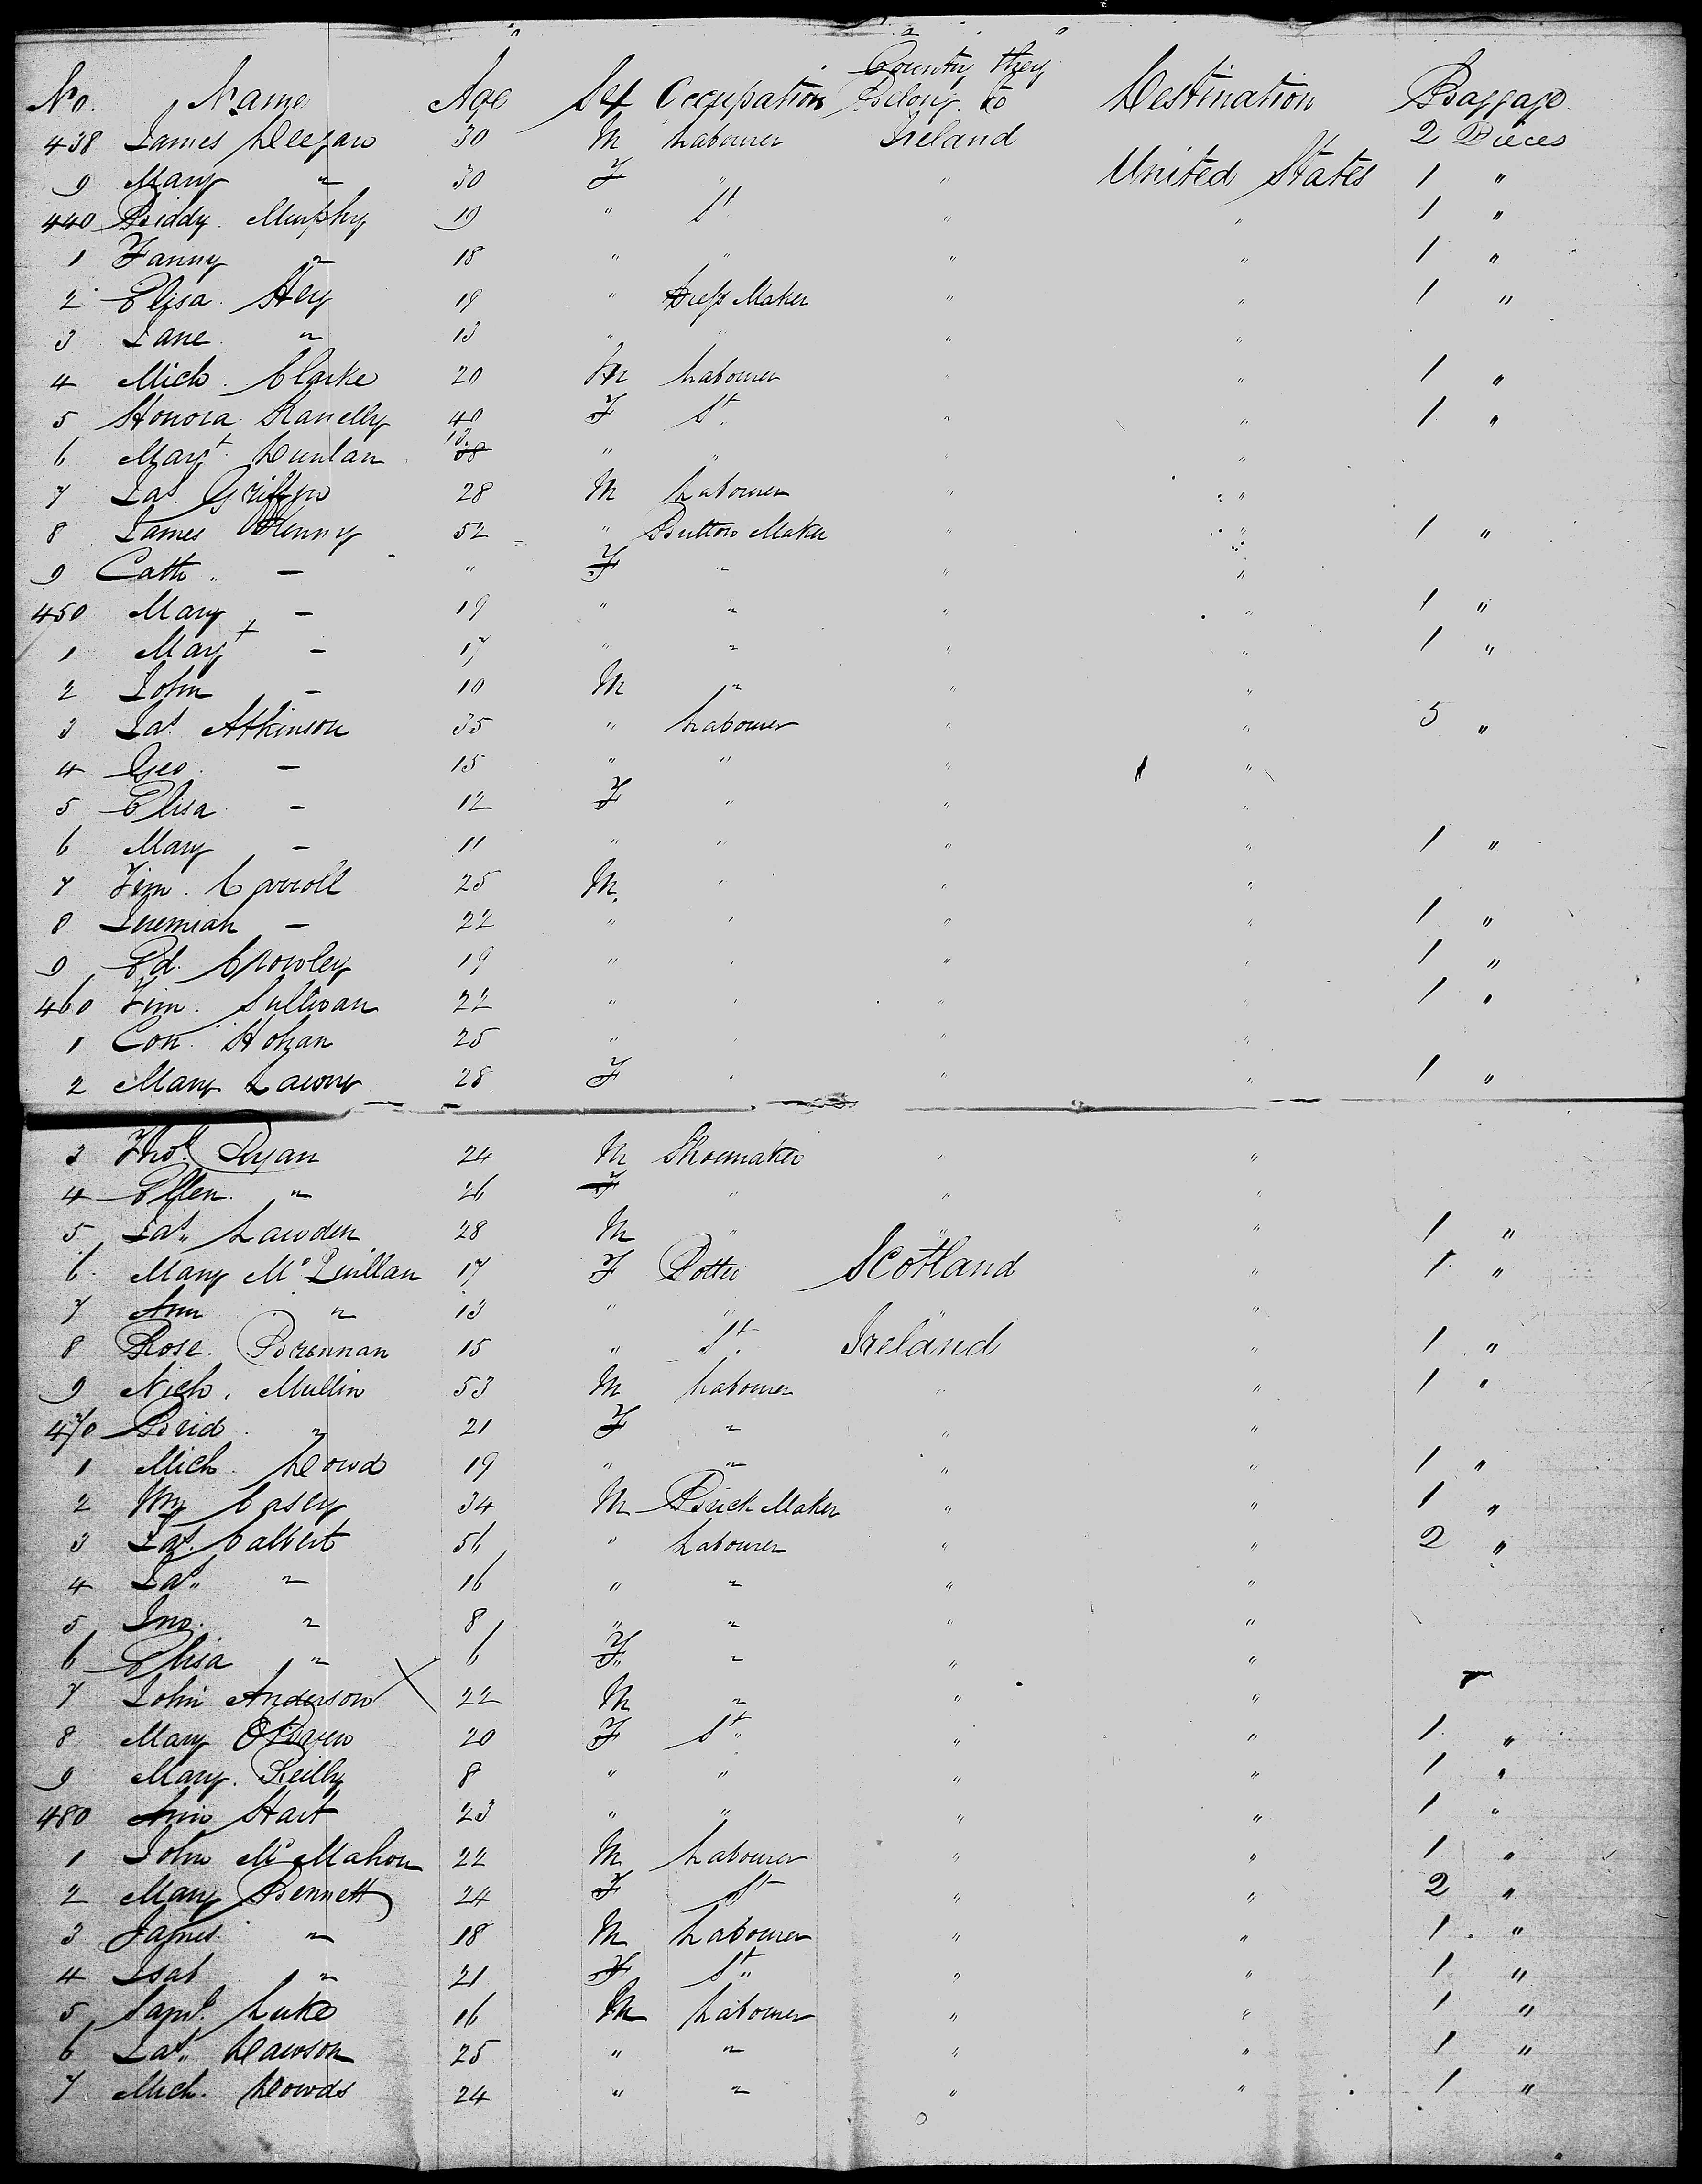 Country they
No. Name Age Sex Occupation Belong to Destination Baggage
438 James Deegan 30 M Labourer Ireland 2 Pieces
9 Mary " 30 F " " United States 1 "
440 Biddy Murphy 19 " St " " 1 "
1 Fanny " 18 " " " " 1 "
2 Elisa Hey 19 " Dress Maker " " 1 "
3 Jane " 13 " " " "
4 Mich. Clarke 20 M Labourer " " 1 "
5 Honora Ranelly 40 F St " " 1 "
6 Margt Dunlan 18 " " " "
7 Jas. Griffin 28 M Labourer " "
8 James Henny 52 " Button Maker " " 1 "
9 Cath. - " F " " "
450 Mary - 19 " " " " 1 "
1 Margt - 17 " " " " 1 "
2 John - 10 M " " "
3 Jas. Atkinson 35 " Labourer " " 5 "
4 Geo. - 15 " " " "
5 Elisa - 12 F " " "
6 Mary - 11 " " " " 1 "
7 Tim. Carroll 25 M. " " "
8 Jeremiah - 22 " " " " 1 "
9 Ed. Crowley 19 " " " " 1 "
460 Tim. Sullivan 22 " " " " 1 "
1 Con. Hohan 25 " " " "
2 Mary 28 F " " " 1 "
3 Thos. Ryan 24 M Shoemaker " "
4 Ellen " 26 F " " "
5 Jas. Lawden 28 M " " " 1 "
6 Mary McQuillan 17 F Potter Scotland " 1 "
7 Ann " 13 " " " "
8 Rose. Brennan 15 " St. Ireland " 1 "
9 Nich. Mullin 53 M Labourer " " 1 "
470 Brid " 21 F " " "
1 Mich. Dowd 19 " " " " 1 "
2 Wm Casey 34 M Brick Maker " " 1 "
3 Jas. Calbert 56 " Labourer " " 2 "
4 Jas. " 16 " " " "
5 Jno. " 8 " " " "
6 Elisa " 6 F " " "
7 John Anderson 22 M " " "
8 Mary O'Bryen 20 F St " " 1 "
9 Mary. Reilly 8 " " " " 1 "
480 Ann Hart 23 " " " " 1 "
1 John McMahon 22 M Labourer " " 1 "
2 Mary Bennett 24 F St " " 2 "
3 James " 18 M Labourer " " 1 "
4 Isab " 21 F St " " 1 "
5 Saml. Luke 16 M Labourer " " 1 "
6 Jas. Dawson 25 " " " " 1 "
7 Mich. Dowds 24 " " " " 1 "